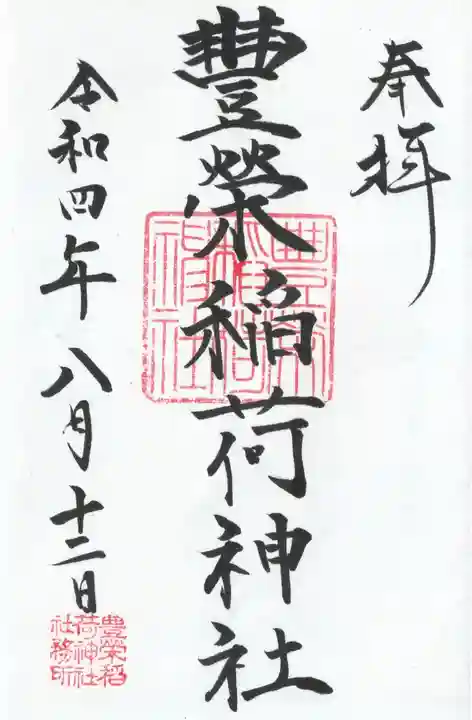 奉拝
豐榮稲荷神社
豊榮稲荷神社
令和四年八月十二日
豊榮稲荷神社社務所